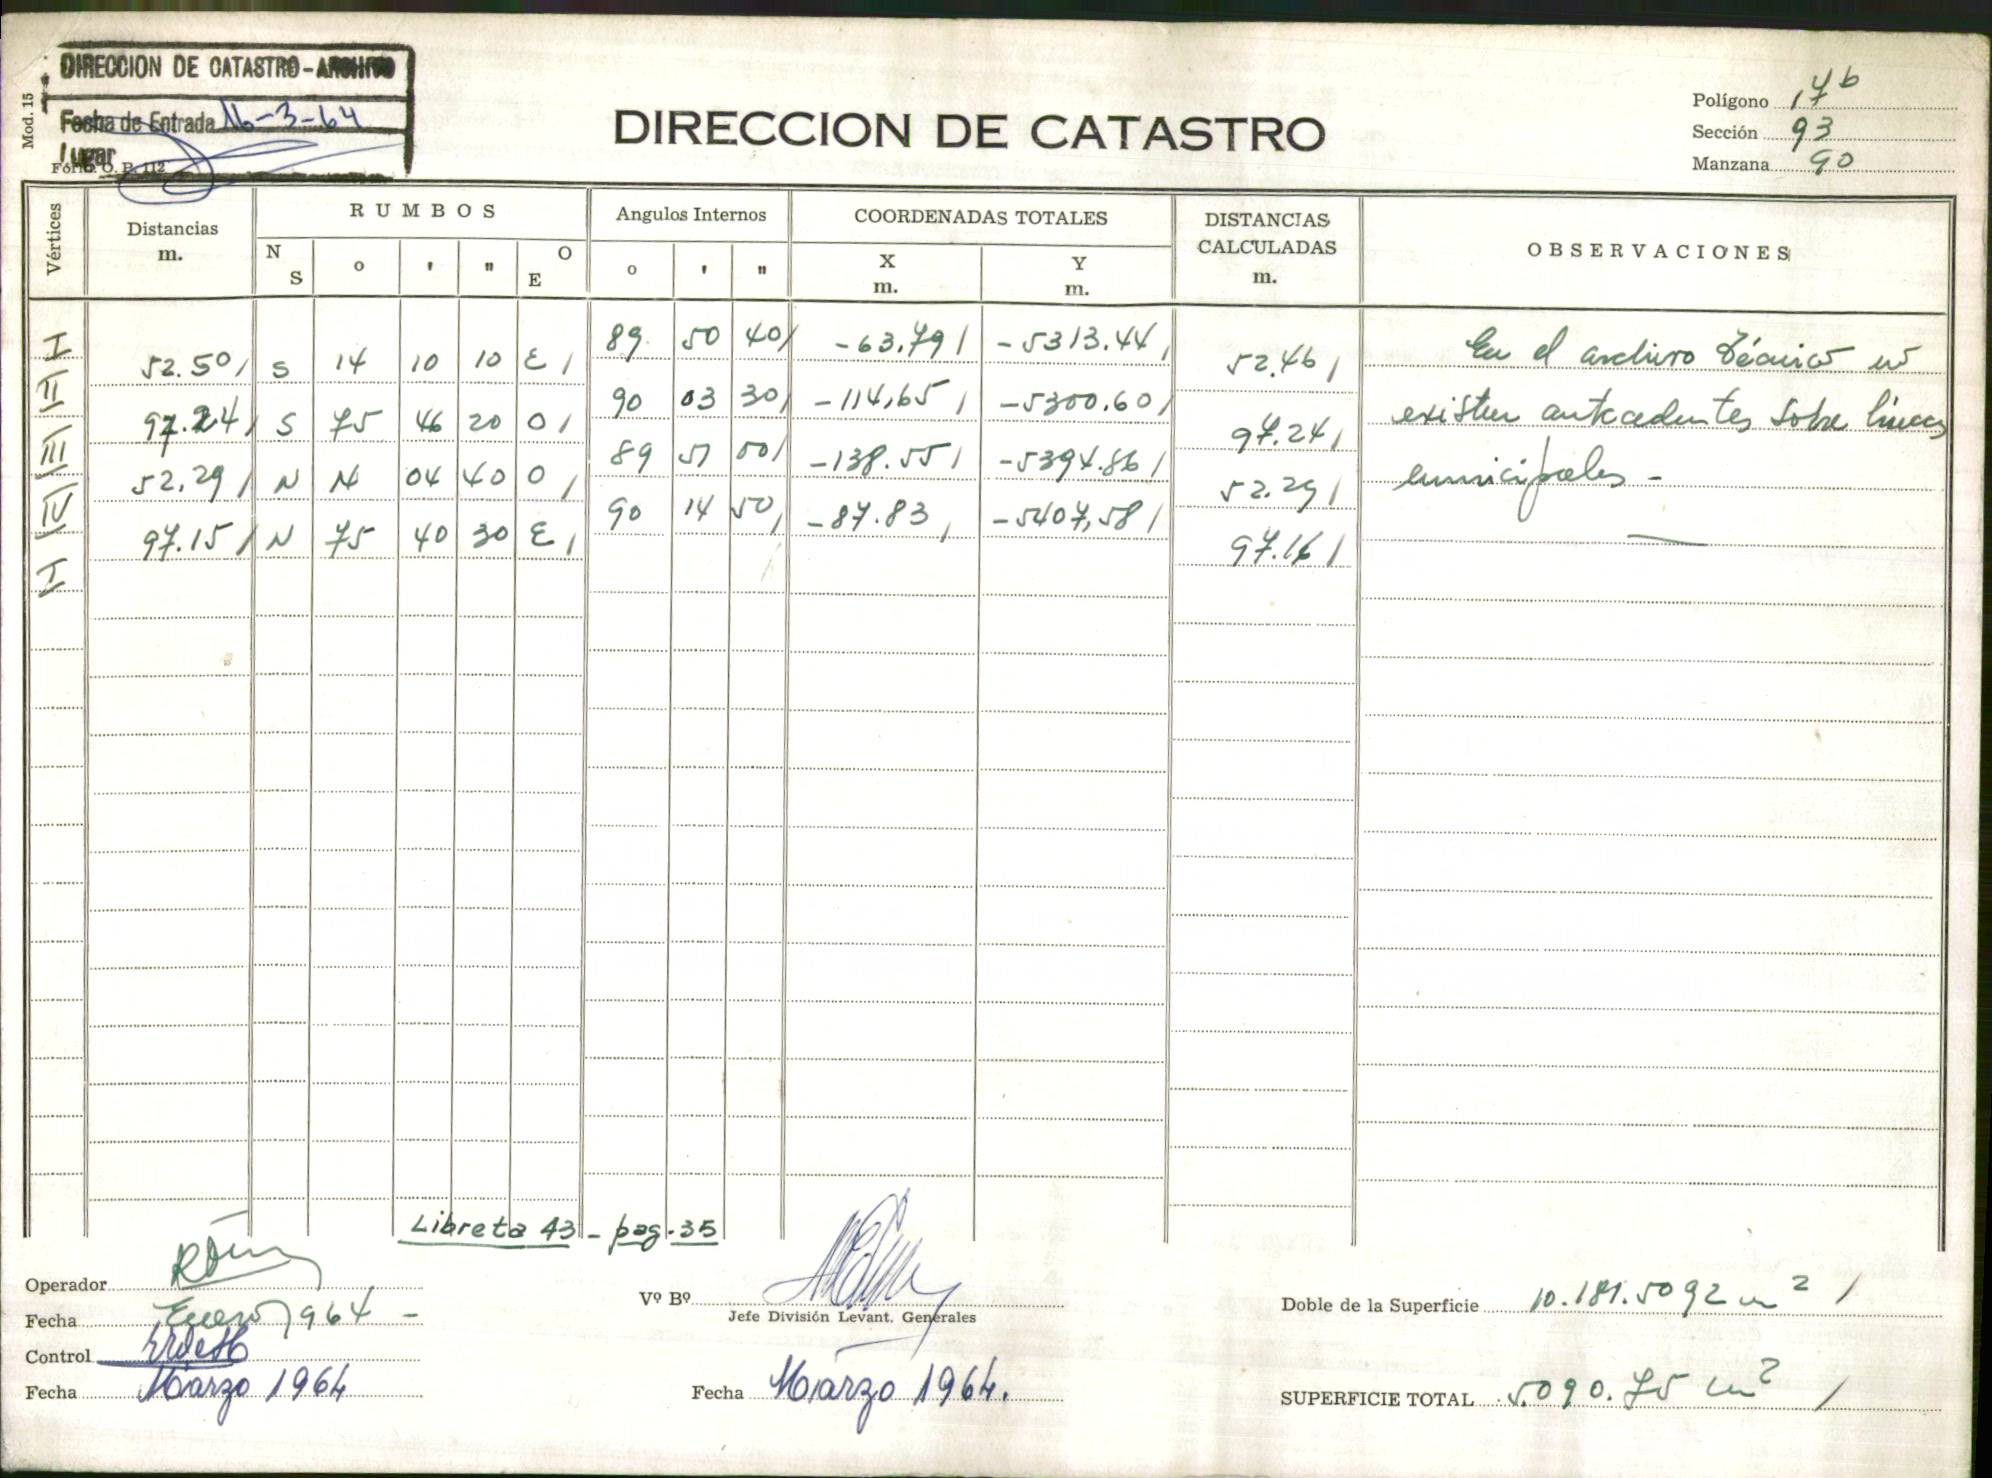 DIRECCION DE CATASTRO - ARCHIVO
Fecha de Entrada 16-3-64
Lugar
Mod. 15
Form. O. P. 112
DIRECCION DE CATASTRO
Polígono 17b
Sección 93
Manzana 90
Vértices
Distancias
m.
RUMBOS
N S ° ' " O E
Angulos Internos
° ' "
COORDENADAS TOTALES
X
m.
Y
m.
DISTANCIAS
CALCULADAS
m.
OBSERVACIONES
I 89 50 40 -63.79 -5313.44
52.50 S 14 10 10 E 52.46 En el archivo técnico no
II 90 03 30 -114,65 -5300.60
97.24 S 75 46 20 O 97.24 existen antecedentes sobre líneas
III 89 51 00 -138.55 -5394.86
52.29 N 14 04 40 O 52.29 municipales -
IV 90 14 50 -87.83 -5407,58
97.15 N 75 40 30 E 97.16
I
Libreta 43 - pag. 35
Operador
Fecha Enero 1964 -
Control
Fecha Marzo 1964
Vº Bº
Jefe División Levant. Generales
Fecha Marzo 1964.
Doble de la Superficie 10.181.5092 m²
SUPERFICIE TOTAL 5.090.75 m²